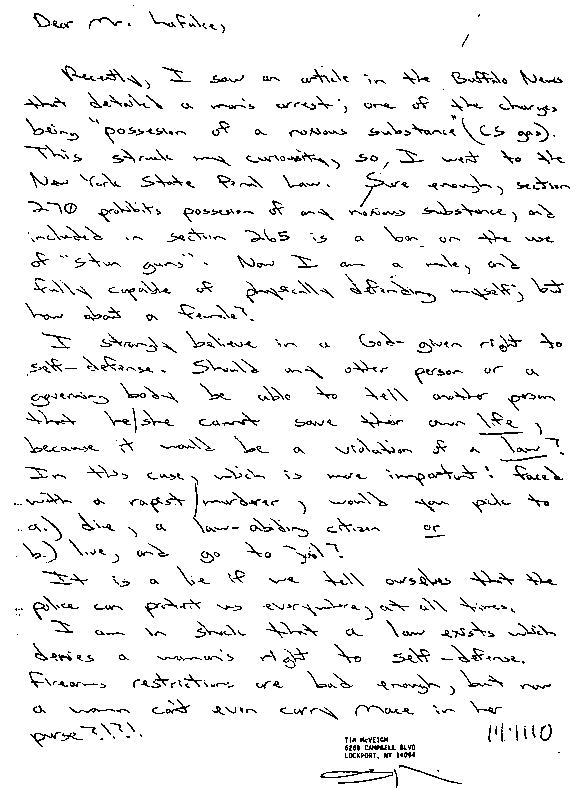 Dear Mr. LaFalce,
Recently, I saw an article in the Buffalo News
that detailed a man's arrest; one of the charges
being "possesion of a noxious substance" (CS gas).
This struck my curiosity, so, I went to the
New York State Penal Law. Sure enough, section
270 prohibits possesion of any noxious substance, and
included in section 265 is a ban on the use
of "stun guns". Now I am a male, and
fully capable of physically defending myself; but
how about a female?
I strongly believe in a God-given right to
self-defense. Should any other person or a
governing body be able to tell another person
that he/she cannot save their own life,
because it would be a violation of a law?
In this case, which is more important: faced
with a rapist/murderer, would you pick to
a.) die, a law-abiding citizen or
b.) live, and go to jail?
It is a lie if we tell ourselves that the
police can protect us everywhere, at all times.
I am in shock that a law exists which
denies a woman's right to self-defense.
Firearms restrictions are bad enough, but now
a woman can't even carry Mace in her
purse?!?!
TIM McVEIGH
6289 CAMPBELL BLVD
LOCKPORT, NY 14094